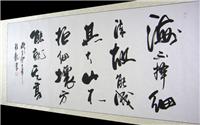 海不擇細
流故能成
其大山不
拒細壤方
能就其高